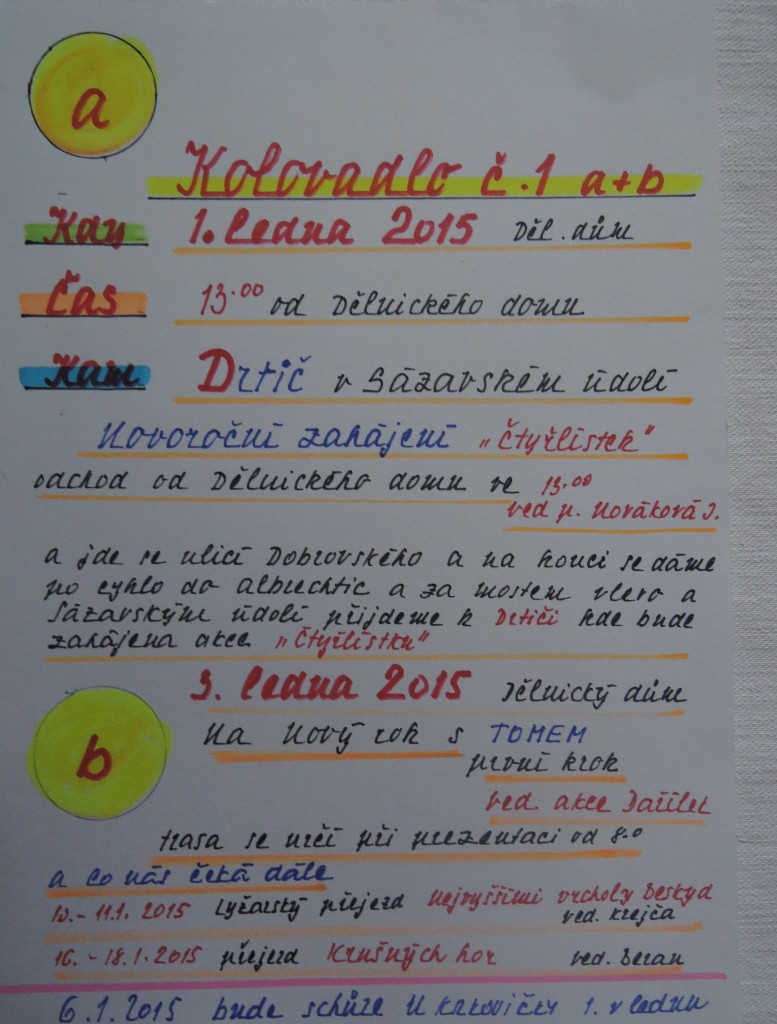 a
Kolovadlo č.1 a+b
Kdy 1. ledna 2015 Děl. dům
Čas 13.00 od Dělnického domu
Kam Drtič v Sázavském údolí
Novoroční zahájení „Čtyřlístek“
odchod od Dělnického domu ve 13.00
ved p. Nováková J.
a jde se ulicí Dobrovského a na konci se dáme
po cyklo do Albrechtic a za mostem vlevo a
Sázavským údolí přijdeme k Drtiči kde bude
zahájena akce „Čtyřlístku“
3. ledna 2015 Dělnický dům
b
Na Nový rok s TOMEM
první krok
ved. akce Dařílek
trasa se určí při prezentaci od 8.0
a co nás čeká dále
10.-11.1. 2015 Lyžařský přejezd Nejvyššími vrcholy Beskyd
ved. Krejča
16.-18.1.2015 přejezd Krušných hor ved. Beran
6.1.2015 bude schůze U Kakovičky 1. v lednu